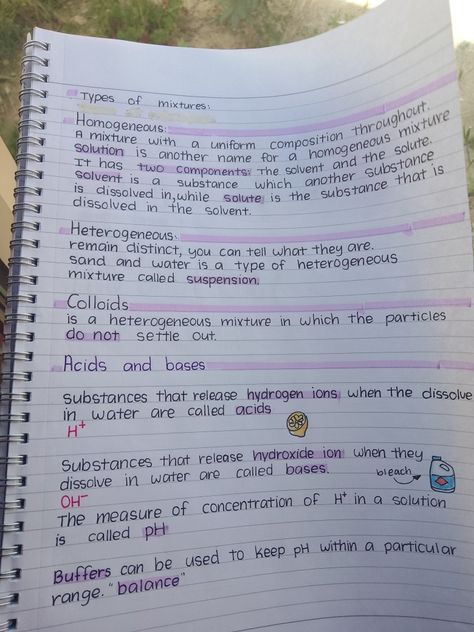 Types of mixtures:
Homogeneous:
A mixture with a uniform composition throughout.
solution is another name for a homogeneous mixture
It has two components: The solvent and the solute.
solvent is a substance which another substance
is dissolved in, while solute is the substance that is
dissolved in the solvent.
Heterogeneous:
remain distinct, you can tell what they are.
sand and water is a type of heterogeneous
mixture called suspension.
Colloids
is a heterogeneous mixture in which the particles
do not settle out.
Acids and bases
Substances that release hydrogen ions when the dissolve
in water are called acids
H+
Substances that release hydroxide ion when they
dissolve in water are called bases.
bleach
OH-
The measure of concentration of H+ in a solution
is called pH
Buffers can be used to keep pH within a particular
range. "balance"